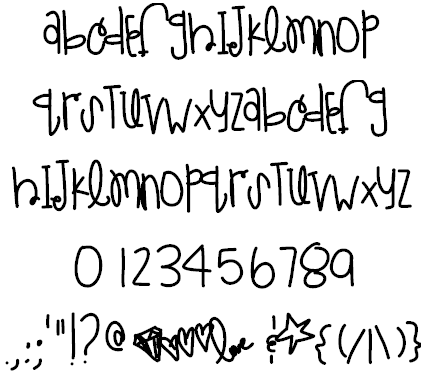 abcdEfghIJklmnop
qrsTuvwxyzabcdEfg
hIJklmnopqrsTuvwxyz
0123456789
.,:;'"|!?@ love &{(/|\)}